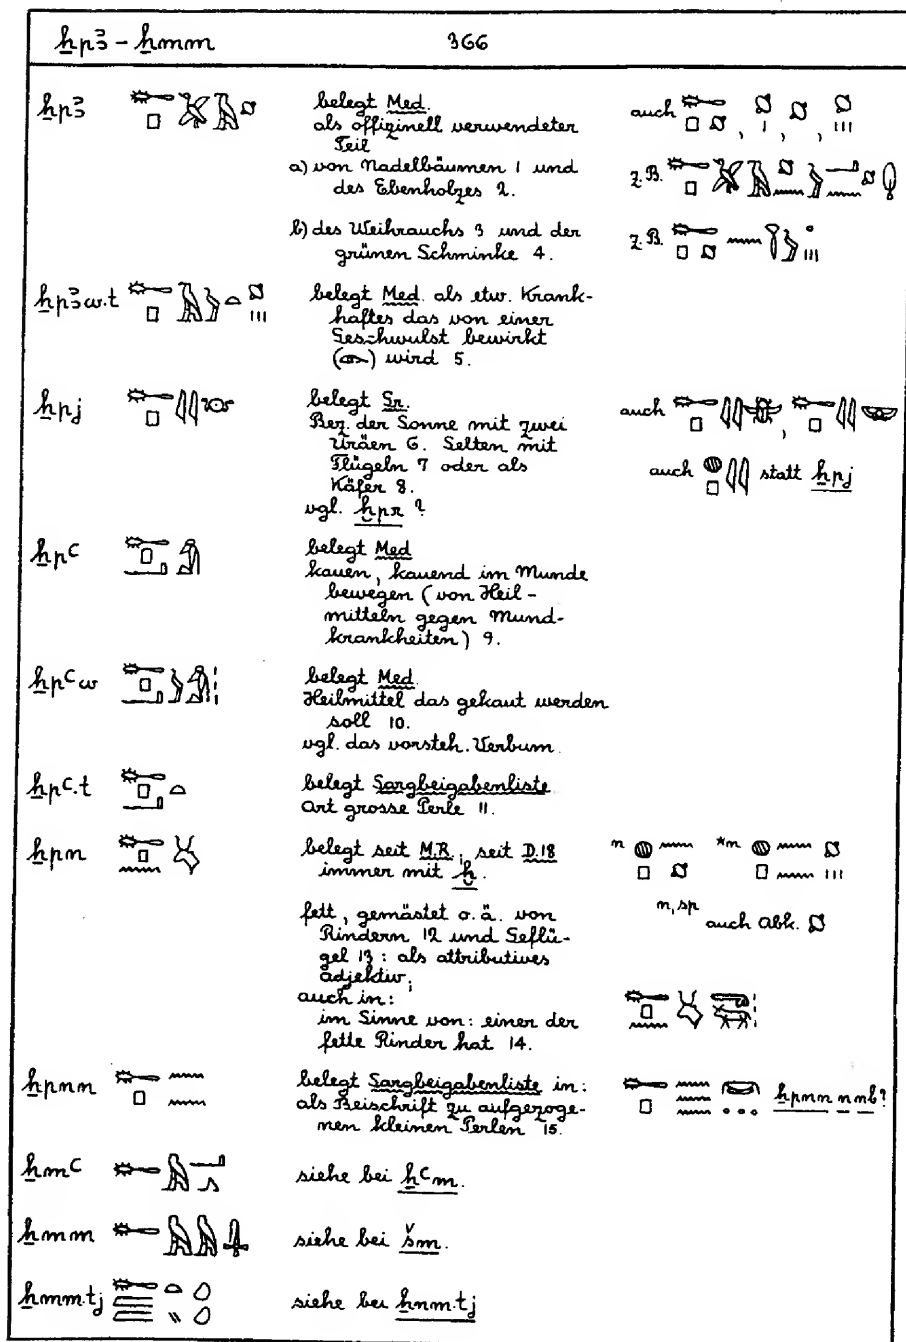 ẖpꜣ - ẖmm 366
ẖpꜣ belegt Med. auch
als offizinell verwendeter
Teil
a) von Nadelbäumen 1 und z.B.
des Ebenholzes 2.
b) des Weihrauchs 3 und der z.B.
grünen Schminke 4.
ẖpꜣw.t belegt Med. als etw. Krank-
haftes das von einer
Geschwulst bewirkt
( ) wird 5.
ẖpj belegt Gr. auch
Bez. der Sonne mit zwei
Uräen 6. Selten mit
Flügeln 7 oder als auch statt ẖpj
Käfer 8.
vgl. ḫpr ?
ẖpꜥ belegt Med
kauen, kauend im Munde
bewegen (von Heil-
mitteln gegen Mund-
krankheiten) 9.
ẖpꜥw belegt Med.
Heilmittel das gekaut werden
soll 10.
vgl. das vorsteh. Verbum.
ẖpꜥ.t belegt Sargbeigabenliste
Art grosse Perle 11.
ẖpn belegt seit M.R., seit D.18 n *n
immer mit ḫ.
n, sp auch Abk.
fett, gemästet o.ä. von
Rindern 12 und Geflü-
gel 13 : als attributives
Adjektiv;
auch in:
im Sinne von: einer der
fette Rinder hat 14.
ẖpnn belegt Sargbeigabenliste in: ẖpnn n nb?
als Beischrift zu aufgezoge-
nen kleinen Perlen 15.
ẖmꜥ siehe bei ẖꜥm.
ẖmm siehe bei šm.
ẖmm.tj siehe bei ẖnm.tj